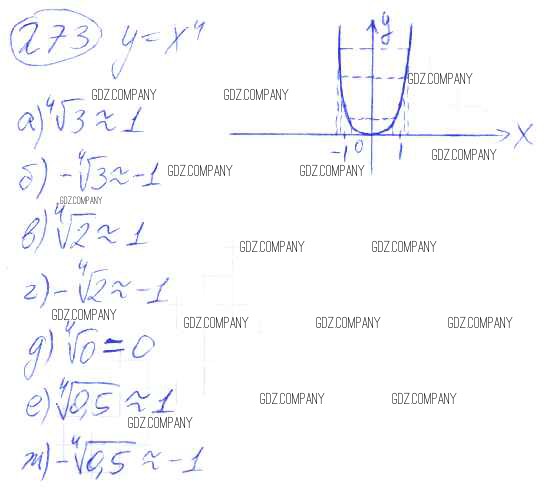 273 y = x⁴
y
GDZ.COMPANY
GDZ.COMPANY GDZ.COMPANY
а) ⁴√3 ≈ 1
-1 0 1 x
GDZ.COMPANY
б) -⁴√3 ≈ -1 GDZ.COMPANY GDZ.COMPANY
GDZ.COMPANY
в) ⁴√2 ≈ 1
GDZ.COMPANY GDZ.COMPANY
г) -⁴√2 ≈ -1
GDZ.COMPANY
GDZ.COMPANY GDZ.COMPANY GDZ.COMPANY
д) ⁴√0 = 0
е) ⁴√0,5 ≈ 1 GDZ.COMPANY GDZ.COMPANY
GDZ.COMPANY
ж) -⁴√0,5 ≈ -1